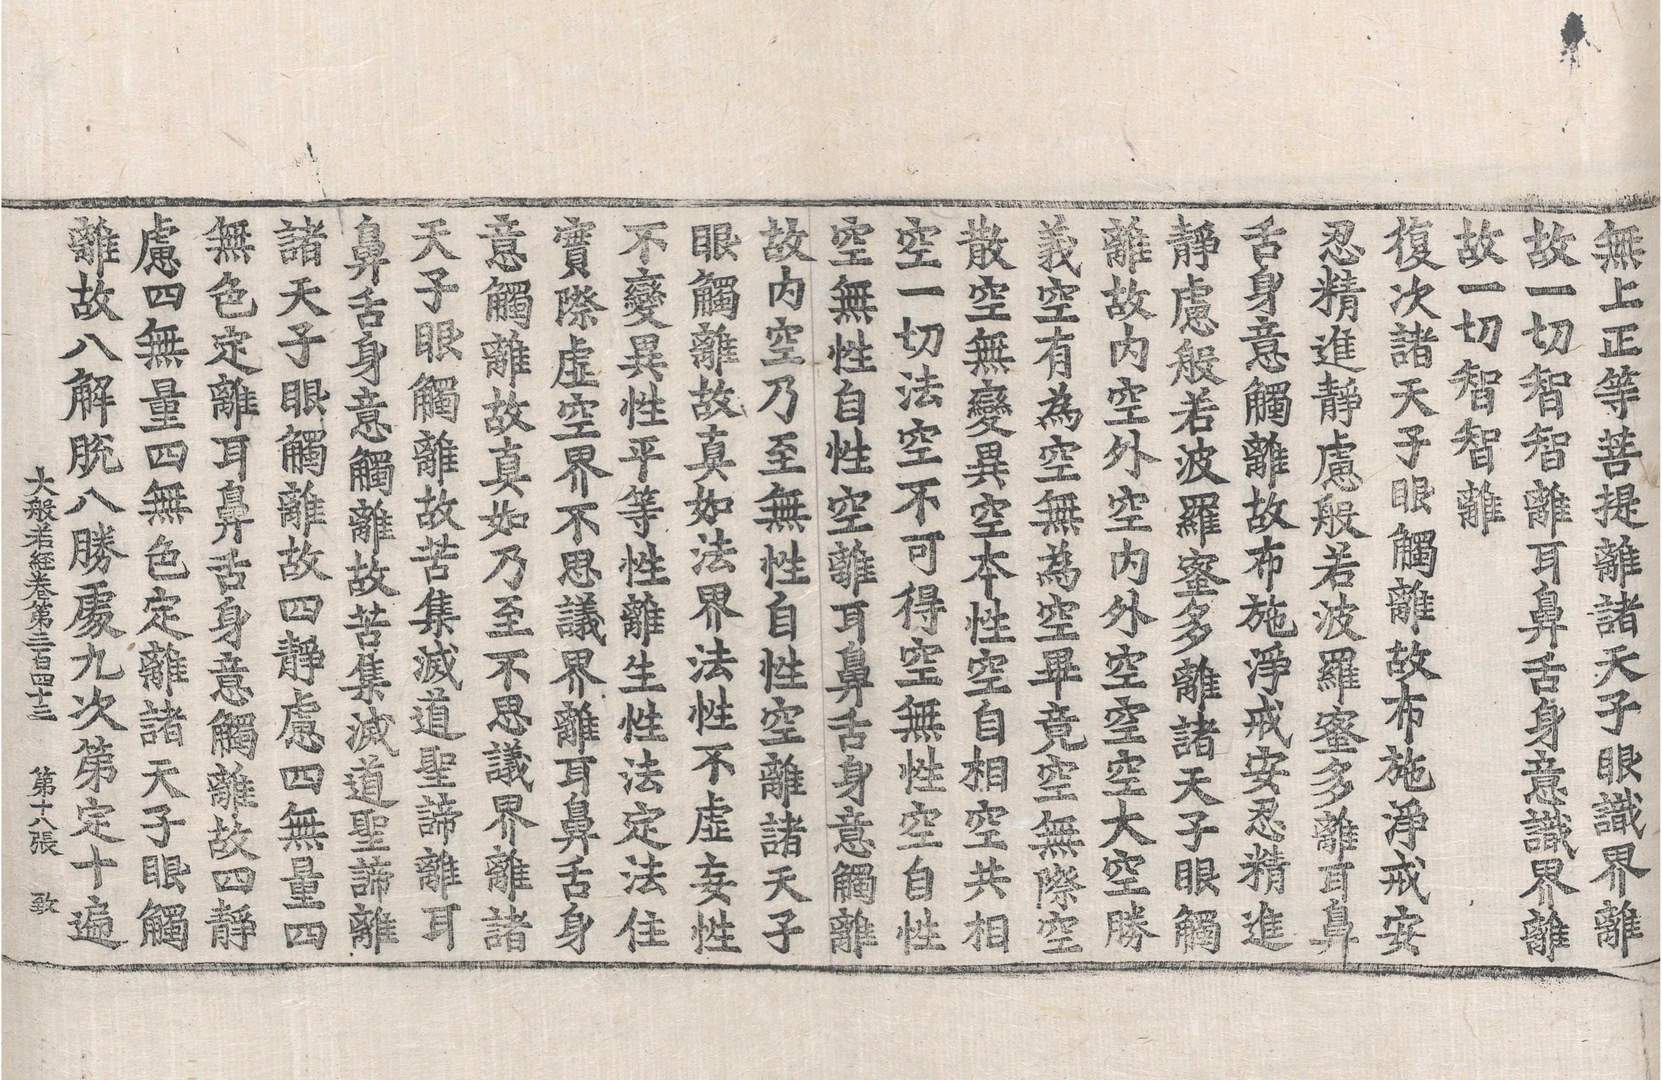 無上正等菩提離諸天子眼識界離
故一切智智離耳鼻舌身意識界離
故一切智智離
復次諸天子眼觸離故布施淨戒安
忍精進靜慮般若波羅蜜多離耳鼻
舌身意觸離故布施淨戒安忍精進
靜慮般若波羅蜜多離諸天子眼觸
離故內空外空內外空空空大空勝
義空有為空無為空畢竟空無際空
散空無變異空本性空自相空共相
空一切法空不可得空無性空自性
空無性自性空離耳鼻舌身意觸離
故內空乃至無性自性空離諸天子
眼觸離故真如法界法性不虛妄性
不變異性平等性離生性法定法住
實際虛空界不思議界離耳鼻舌身
意觸離故真如乃至不思議界離諸
天子眼觸離故苦集滅道聖諦離耳
鼻舌身意觸離故苦集滅道聖諦離
諸天子眼觸離故四靜慮四無量四
無色定離耳鼻舌身意觸離故四靜
慮四無量四無色定離諸天子眼觸
離故八解脫八勝處九次第定十遍
大般若經卷第三百四十三 第十八張 致